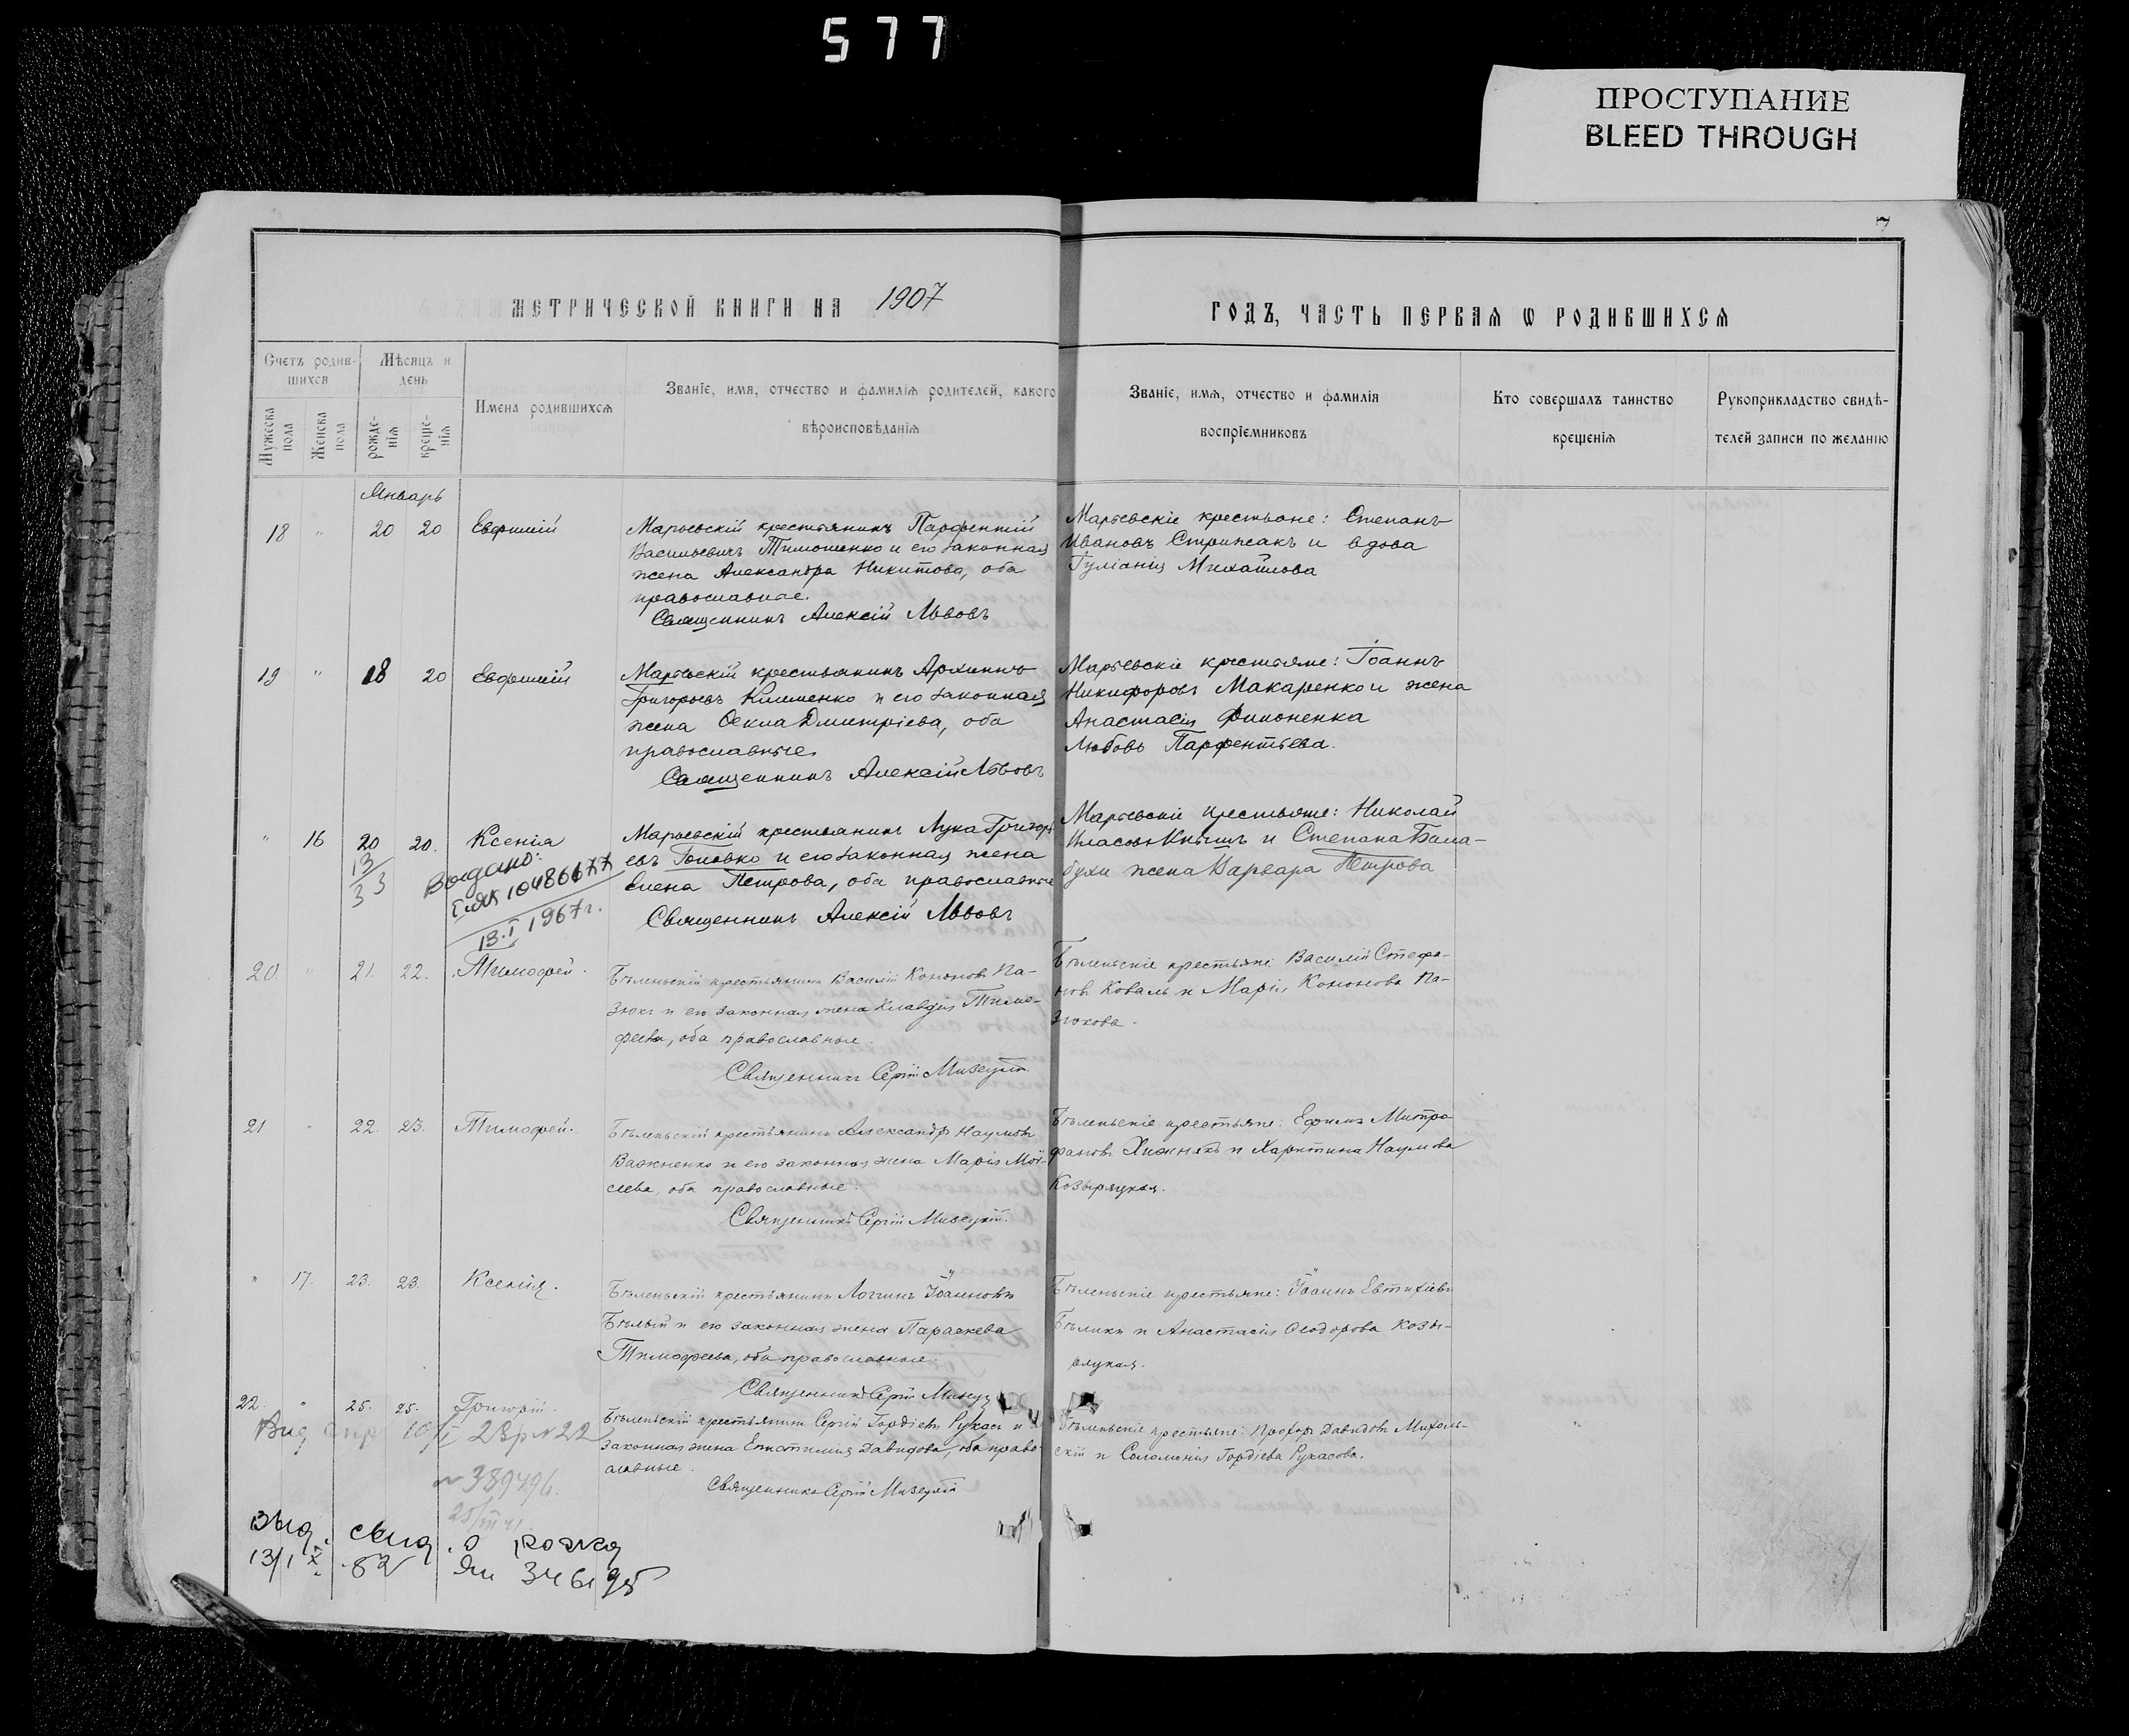 577
ПРОСТУПАНИЕ
BLEED THROUGH
7
МЕТРИЧЕСКОЙ КНИГИ НА 1907
ГОДЪ, ЧАСТЬ ПЕРВАЯ Ѡ РОДИВШИХСЯ
Счетъ родив-
шихся
Мѣсяцъ и
день
Мужеска
пола
Женска
пола
рожде-
нія
креще-
нія
Имена родившихся
Званіе, имя, отчество и фамилія родителей, какого
вѣроисповѣданія
Званіе, имя, отчество и фамилія
воспріемниковъ
Кто совершалъ таинство
крещенія
Рукоприкладство свидѣ-
телей записи по желанію
Январь
18 " 20 20 Евфимій
крестьянинъ Парфентій
Васильевичъ Тимошенко и его законная
жена Александра Никитова, оба
православные.
Священникъ Алексій Львовъ
крестьяне: Степанъ
Ивановъ Стрижакъ и вдова
Іуліанія Михайлова
19 " 18 20 Евфимій
крестьянинъ Архиппъ
Григорьевъ Клименко и его законная
жена Дмитріева, оба
православные.
Священникъ Алексій Львовъ
крестьяне: Іоаннъ
Никифоровъ Макаренко и жена
Анастасія
Любовь Парфентьева.
" 16 20 20. Ксенія
крестьянинъ Лука Григорь
евъ Головко и его законная жена
Елена Петрова, оба православные
Священникъ Алексій Львовъ
крестьяне: Николай
и Степана Бала-
бухи жена Варвара Петрова
13
3 3
Выдано:
13.I 1967г.
20 " 21. 22. Тимофей.
Бѣленьскій крестьянинъ Василій Кононовъ Па-
зюкъ и его законная жена Клавдія Тимо-
феева, оба православные.
Священникъ Сергій
Бѣленьскіе крестьяне Василій Стефа-
новъ Коваль и Марія Кононова Па-
зюкова.
21 " 22. 23. Тимофей.
Бѣленьскій крестьянинъ Александръ Наумовъ
Важненко и его законная жена Марія Мои-
сеева, оба православные.
Священникъ Сергій
Бѣленьскіе крестьяне: Ефимъ Митро
фановъ Хижнякъ и Харитина Наумова
Козыряцкая.
" 17. 23. 23. Ксенія.
Бѣленьскій крестьянинъ Логгинъ Іоанновъ
Бѣлый и его законная жена Параскева
Тимофеева, оба православные.
Священникъ Сергій
Бѣленьскіе крестьяне: Іоаннъ Евтихіевъ
Бѣликъ и Анастасія Ѳеодорова Козы-
ряцкая.
22. " 25. 25. Григорій.
Бѣленьскій крестьянинъ Сергій Гордіевъ Рукасъ и
законная жена Давидова, оба право-
славные.
Священникъ Сергій
Бѣленьскіе крестьяне: Прохоръ Давидовъ
скій и Соломонія Гордіева Рукасова.
№ 389496.
Выд. свид. о рожд